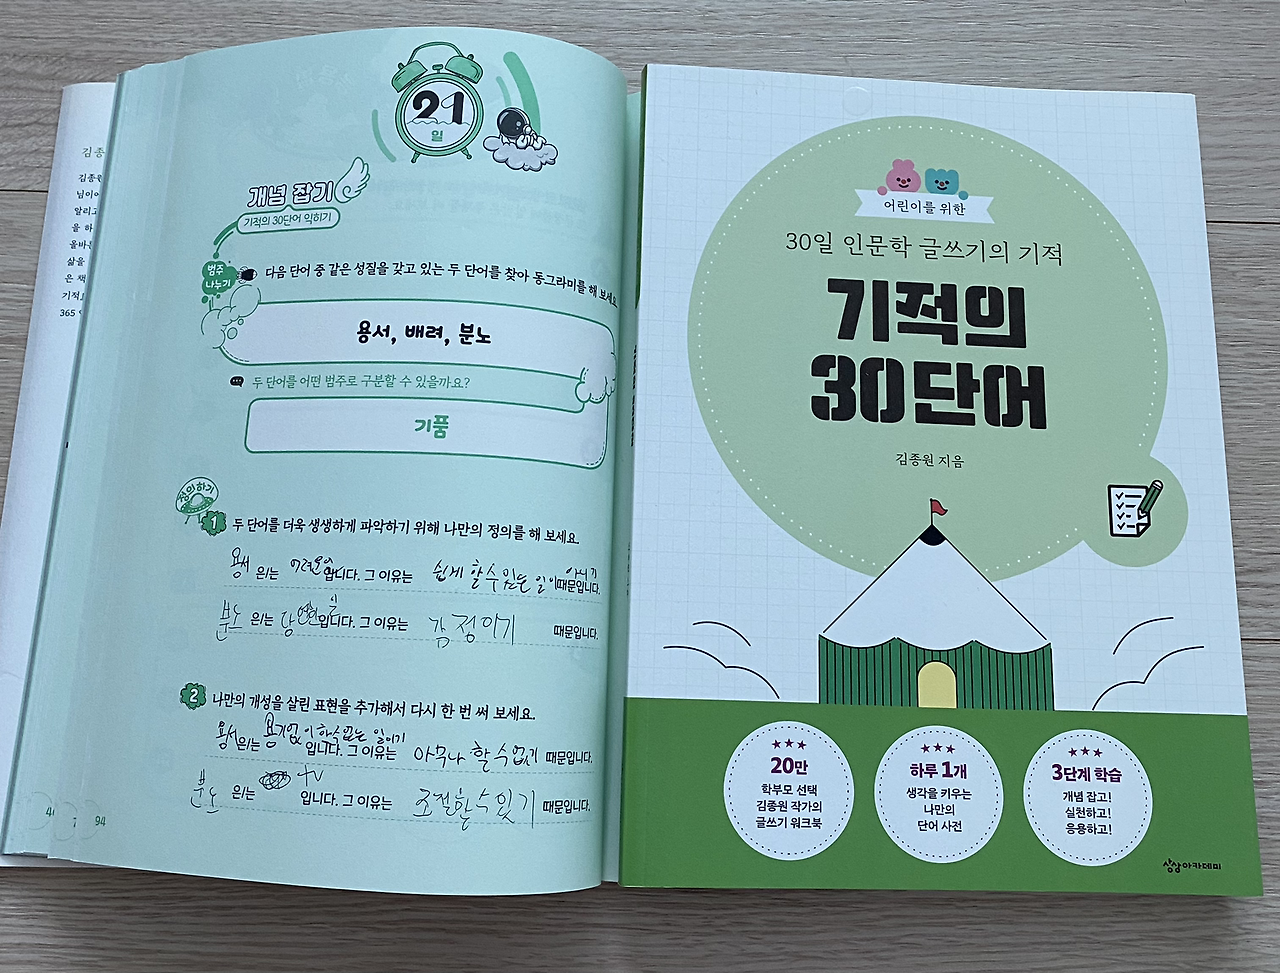 김종
김종원
님이
알리고
을 하
올바른
삶을
은 책
기적
365
21
일
개념 잡기
기적의 30단어 익히기
범주
나누기
다음 단어 중 같은 성질을 갖고 있는 두 단어를 찾아 동그라미를 해 보세요.
용서, 배려, 분노
두 단어를 어떤 범주로 구분할 수 있을까요?
기품
정의하기
1 두 단어를 더욱 생생하게 파악하기 위해 나만의 정의를 해 보세요.
용서 은/는 어려움입니다. 그 이유는 쉽게 할 수 있는 일이 아니기 때문입니다.
분노 은/는 당연한 입니다. 그 이유는 감정이기 때문입니다.
2 나만의 개성을 살린 표현을 추가해서 다시 한 번 써 보세요.
용서 은/는 용기 없이 할 수 없는 일이기 입니다. 그 이유는 아무나 할 수 없기 때문입니다.
분노 은/는 TV 입니다. 그 이유는 조절할 수 있기 때문입니다.
94
어린이를 위한
30일 인문학 글쓰기의 기적
기적의
30단어
김종원 지음
20만
학부모 선택
김종원 작가의
글쓰기 워크북
하루 1개
생각을 키우는
나만의
단어 사전
3단계 학습
개념 잡고!
실천하고!
응용하고!
상상아카데미